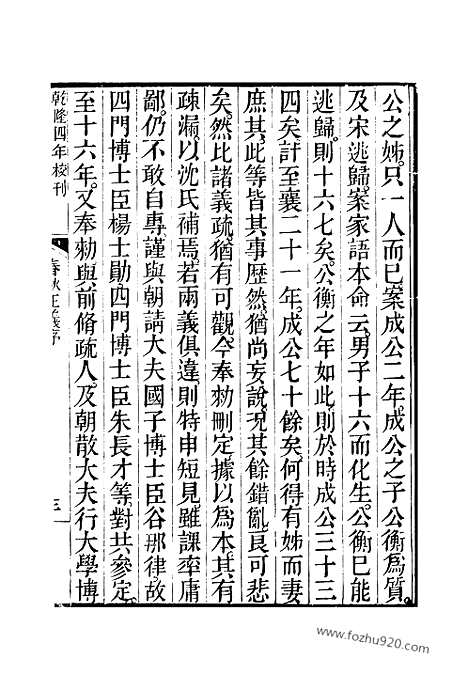 公之姊。只一人而已。案成公二年。成公之子公衡爲質。
及宋逃歸。案家語本命云。男子十六而化生。公衡已能
逃歸。則十六七矣。公衡之年如此。則於時成公三十三
四矣。計至襄二十一年。成公七十餘矣。何得有姊而妻
庶其。此等皆其事歷然。猶尚妄說。況其餘錯亂。良可悲
矣。然比諸義疏。猶有可觀。今奉勑刪定。據以爲本。其有
疎漏。以沈氏補焉。若兩義俱違。則特申短見。雖課率庸
鄙。仍不敢自專。謹與朝請大夫國子博士臣谷那律。故
四門博士臣楊士勛。四門博士臣朱長才等。對共參定。
至十六年。又奉勑與前脩疏人。及朝散大夫行大學博
乾隆四年校刊
春秋正義序
三
www.fozhu920.com